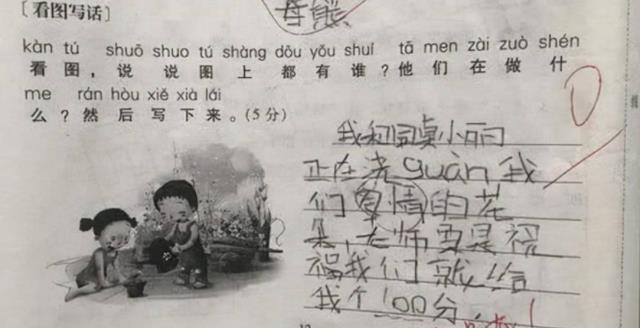 [看图写话]
kàn tú shuō shuo tú shàng dōu yǒu shuí tā men zài zuò shén
看图，说说图上都有谁？他们在做什
me rán hòu xiě xià lái
么？然后写下来。(5分)
我和同桌小丽
正在浇guàn我
们爱情的花
朵，老师要是祝
福我们就给
我个100分.